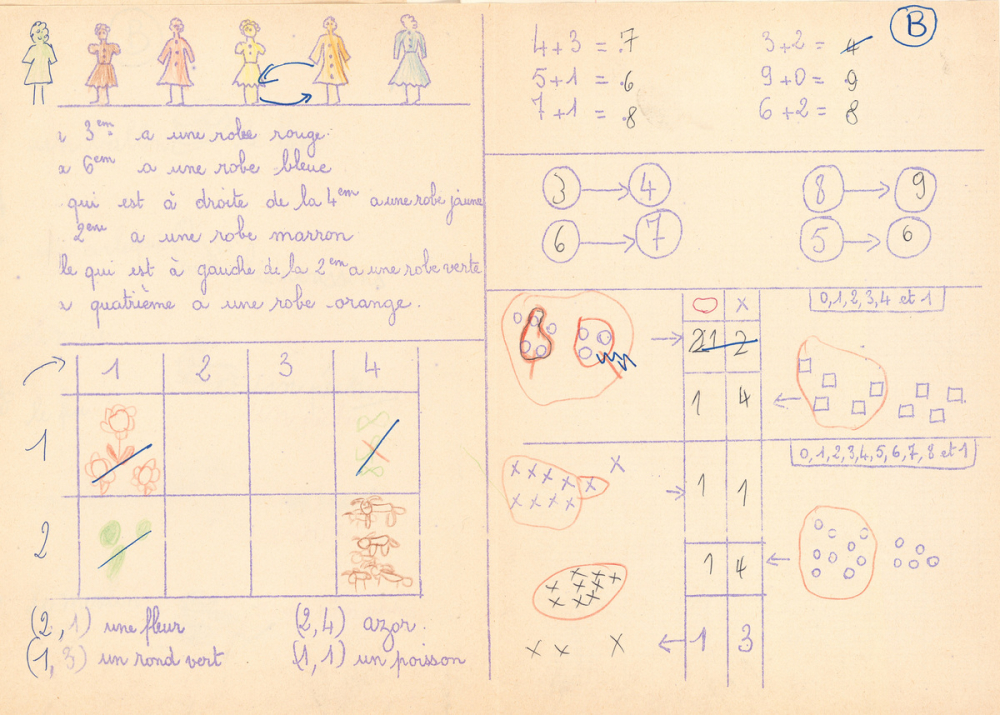 3em a une robe rouge.
6em a une robe bleue
qui est à droite de la 4em a une robe jaune
2eme a une robe marron
le qui est à gauche de la 2em a une robe verte
quatrième a une robe orange.
1 2 3 4
1
2
(2,1) une fleur
(2,4) azor.
(1,3) un rond vert
(1,1) un poisson
B
4+3 = 7
3+2 = 4
5+1 = 6
9+0 = 9
7+1 = 8
6+2 = 8
3 4
8 9
6 7
5 6
x
0,1,2,3,4 et 1
1 2
1 4
0,1,2,3,4,5,6,7,8 et 1
1 1
1 4
1 3